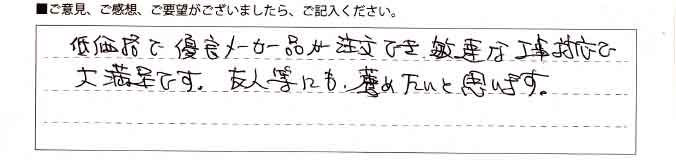 ■ご意見、ご感想、ご要望がございましたら、ご記入ください。
低価格で優良メーカー品が注文でき、敏速な工事対応で
大満足です。友人等にも、薦めたいと思います。